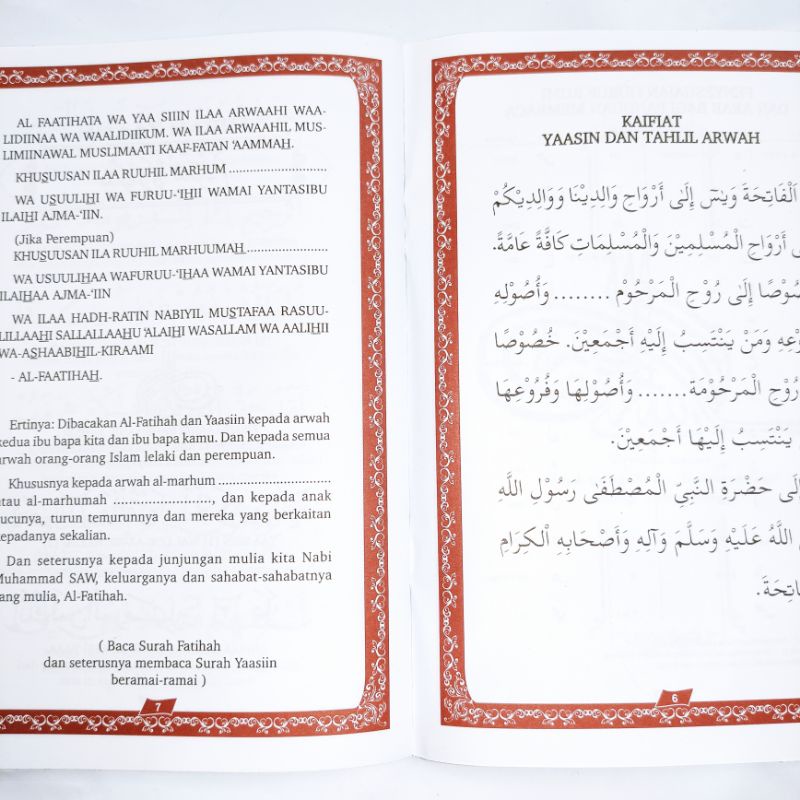 KAIFIAT
YAASIN DAN TAHLIL ARWAH
اَلْفَاتِحَةَ وَيٰسٓ إِلَى أَرْوَاحِ وَالِدِيْنَا وَوَالِدِيْكُمْ
أَرْوَاحِ الْمُسْلِمِيْنَ وَالْمُسْلِمَاتِ كَافَّةً عَامَّةً.
صُوْصًا إِلَى رُوْحِ الْمَرْحُوْمِ ........ وَأُصُوْلِهِ
وْعِهِ وَمَنْ يَنْتَسِبُ إِلَيْهِ أَجْمَعِيْنَ. خُصُوْصًا
رُوْحِ الْمَرْحُوْمَةِ ....... وَأُصُوْلِهَا وَفُرُوْعِهَا
يَنْتَسِبُ إِلَيْهَا أَجْمَعِيْنَ.
لَى حَضْرَةِ النَّبِيِّ الْمُصْطَفَى رَسُوْلِ اللَّهِ
اللَّهُ عَلَيْهِ وَسَلَّمَ وَآلِهِ وَأَصْحَابِهِ الْكِرَامِ
اتِحَةَ.
6
AL FAATIHATA WA YAA SIIIN ILAA ARWAAHI WAA-
LIDIINAA WA WAALIDIIKUM. WA ILAA ARWAAHIL MUS-
LIMIINAWAL MUSLIMAATI KAAF-FATAN 'AAMMAH.
KHUSUUSAN ILAA RUUHIL MARHUM ............................
WA USUULIHI WA FURUU-'IHII WAMAI YANTASIBU
ILAIHI AJMA-'IIN.
(Jika Perempuan)
KHUSUUSAN ILA RUUHIL MARHUUMAH .......................
WA USUULIHAA WAFURUU-'IHAA WAMAI YANTASIBU
ILAIHAA AJMA-'IIN
WA ILAA HADH-RATIN NABIYIL MUSTAFAA RASUU-
LILLAAHI SALLALLAAHU 'ALAIHI WASALLAM WA AALIHII
WA-ASHAABIHIL-KIRAAMI
- AL-FAATIHAH.
Ertinya: Dibacakan Al-Fatihah dan Yaasiin kepada arwah
kedua ibu bapa kita dan ibu bapa kamu. Dan kepada semua
arwah orang-orang Islam lelaki dan perempuan.
Khususnya kepada arwah al-marhum ................................
atau al-marhumah ........................., dan kepada anak
cucunya, turun temurunnya dan mereka yang berkaitan
kepadanya sekalian.
Dan seterusnya kepada junjungan mulia kita Nabi
Muhammad SAW, keluarganya dan sahabat-sahabatnya
yang mulia, Al-Fatihah.
( Baca Surah Fatihah
dan seterusnya membaca Surah Yaasiin
beramai-ramai )
7